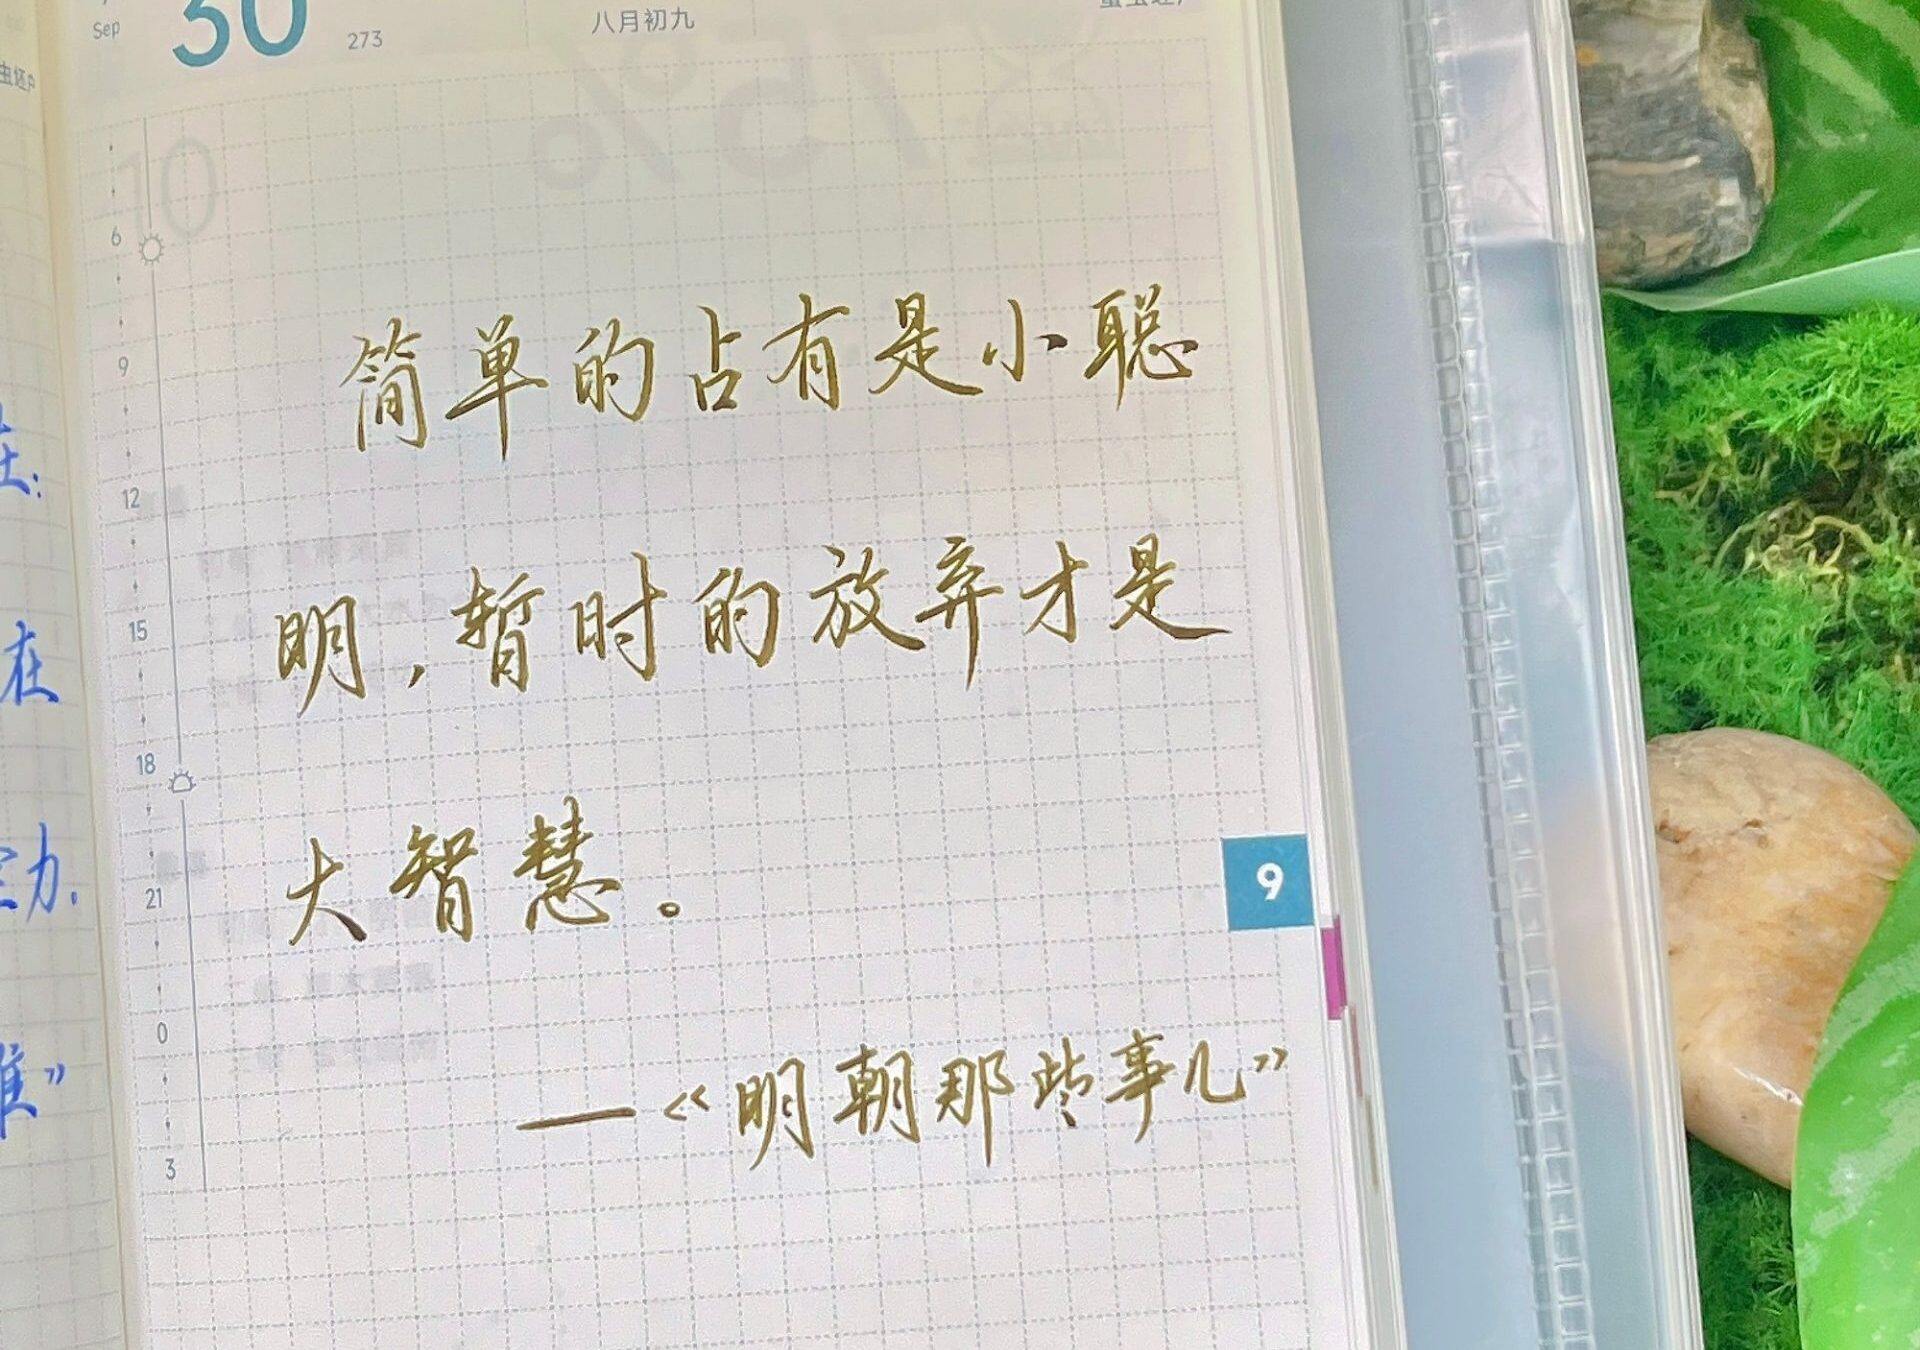 Sep
30
273
八月初九
10
6
9
12
15
18
21
0
3
简单的占有是小聪
明,暂时的放弃才是
大智慧。
——《明朝那些事儿》
9
在
力.